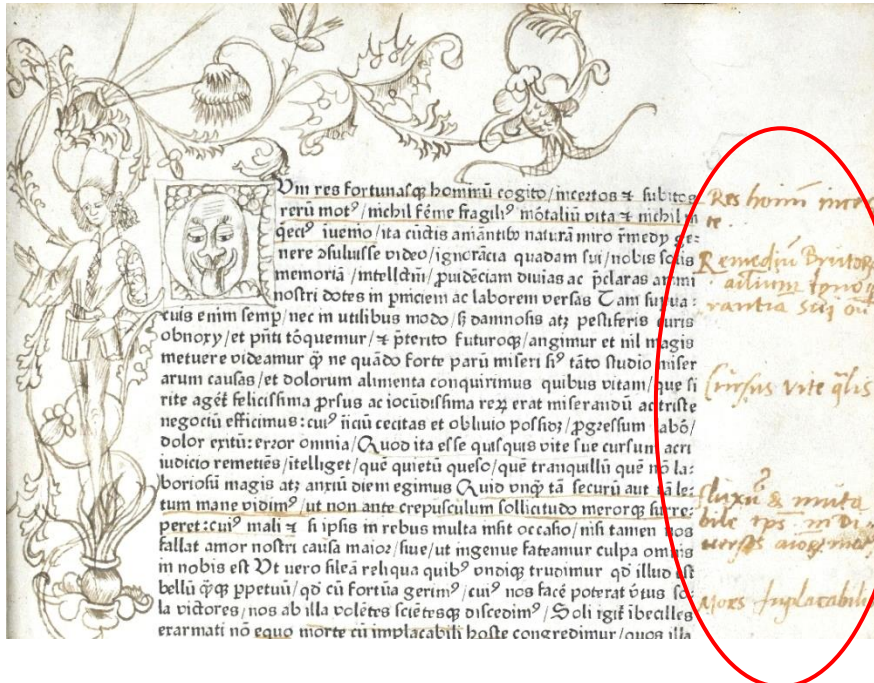 Vm res fortunasqꝫ hominū cogito/incertos ⁊ subitos
rerū motꝰ/nichil ferme fragilꝰ mortaliū vita ⁊ nichil
iuenio/ita cūctis animātibꝰ naturā miro remedy ge-
nere ꝯsuluisse video/ignorācia quadam sui/nobis solis
memoriā/intellectū/ꝓuidēciam diuias ac p̄claras animi
nostri dotes in pniciem ac laborem versas Tam supua:
cuis enim semp/nec in utilibus modo/sꝫ damnosis atꝫ pestiferis curis
obnoxy/et pn̄ti tōquemur/⁊ p̄terito futuroqꝫ/angimur et nil magis
metuere videamur qꝫ ne quādo forte parū miseri sꝰ tāto studio miser
arum causas/et dolorum alimenta conquirimus quibus vitam/que si
rite agēt felicissima ꝓrsus ac iocūdissima reꝝ erat miserandū ac triste
negociū efficimus:cuiꝰ iniciū cecitas et obliuio possioꝫ/ꝓgressum labō/
dolor exitū:error omnia/Quod ita esse quisquis vite sue cursum acri
iudicio remetiēs/ītelliget/quē quietū queso/quē tranquillū quē nō la:
boriosū magis atꝫ anxiū diem egimus Quid vnqꝫ tā securū aut tā le:
tum mane vidimꝰ/ut non ante crepusculum sollicitudo merorqꝫ surre:
peret:cuiꝰ mali ⁊ si ipsis in rebus multa insit occasio/nisi tamen nos
fallat amor nostri causa maior/siue/ut ingenue fateamur culpa omnis
in nobis est Vt uero sileā reliqua quibꝰ vndiqꝫ trudimur qd illud est
bellū qꝫqꝫ ppetuū/qd cū fortūa gerimꝰ/cuiꝰ nos facē poterat v̄tus so:
la victores/nos ab illa volētes sciētesqꝫ discedimꝰ/Soli igit̄ ibecilles
erarmati nō equo morte cū implacabili hoste congredimur/quos illa
Res homī incer
te
Remediū Brutoꝝ
rantia sui
Cursus vite qlis
fluxū & muta
bile
Mors Inplacabili